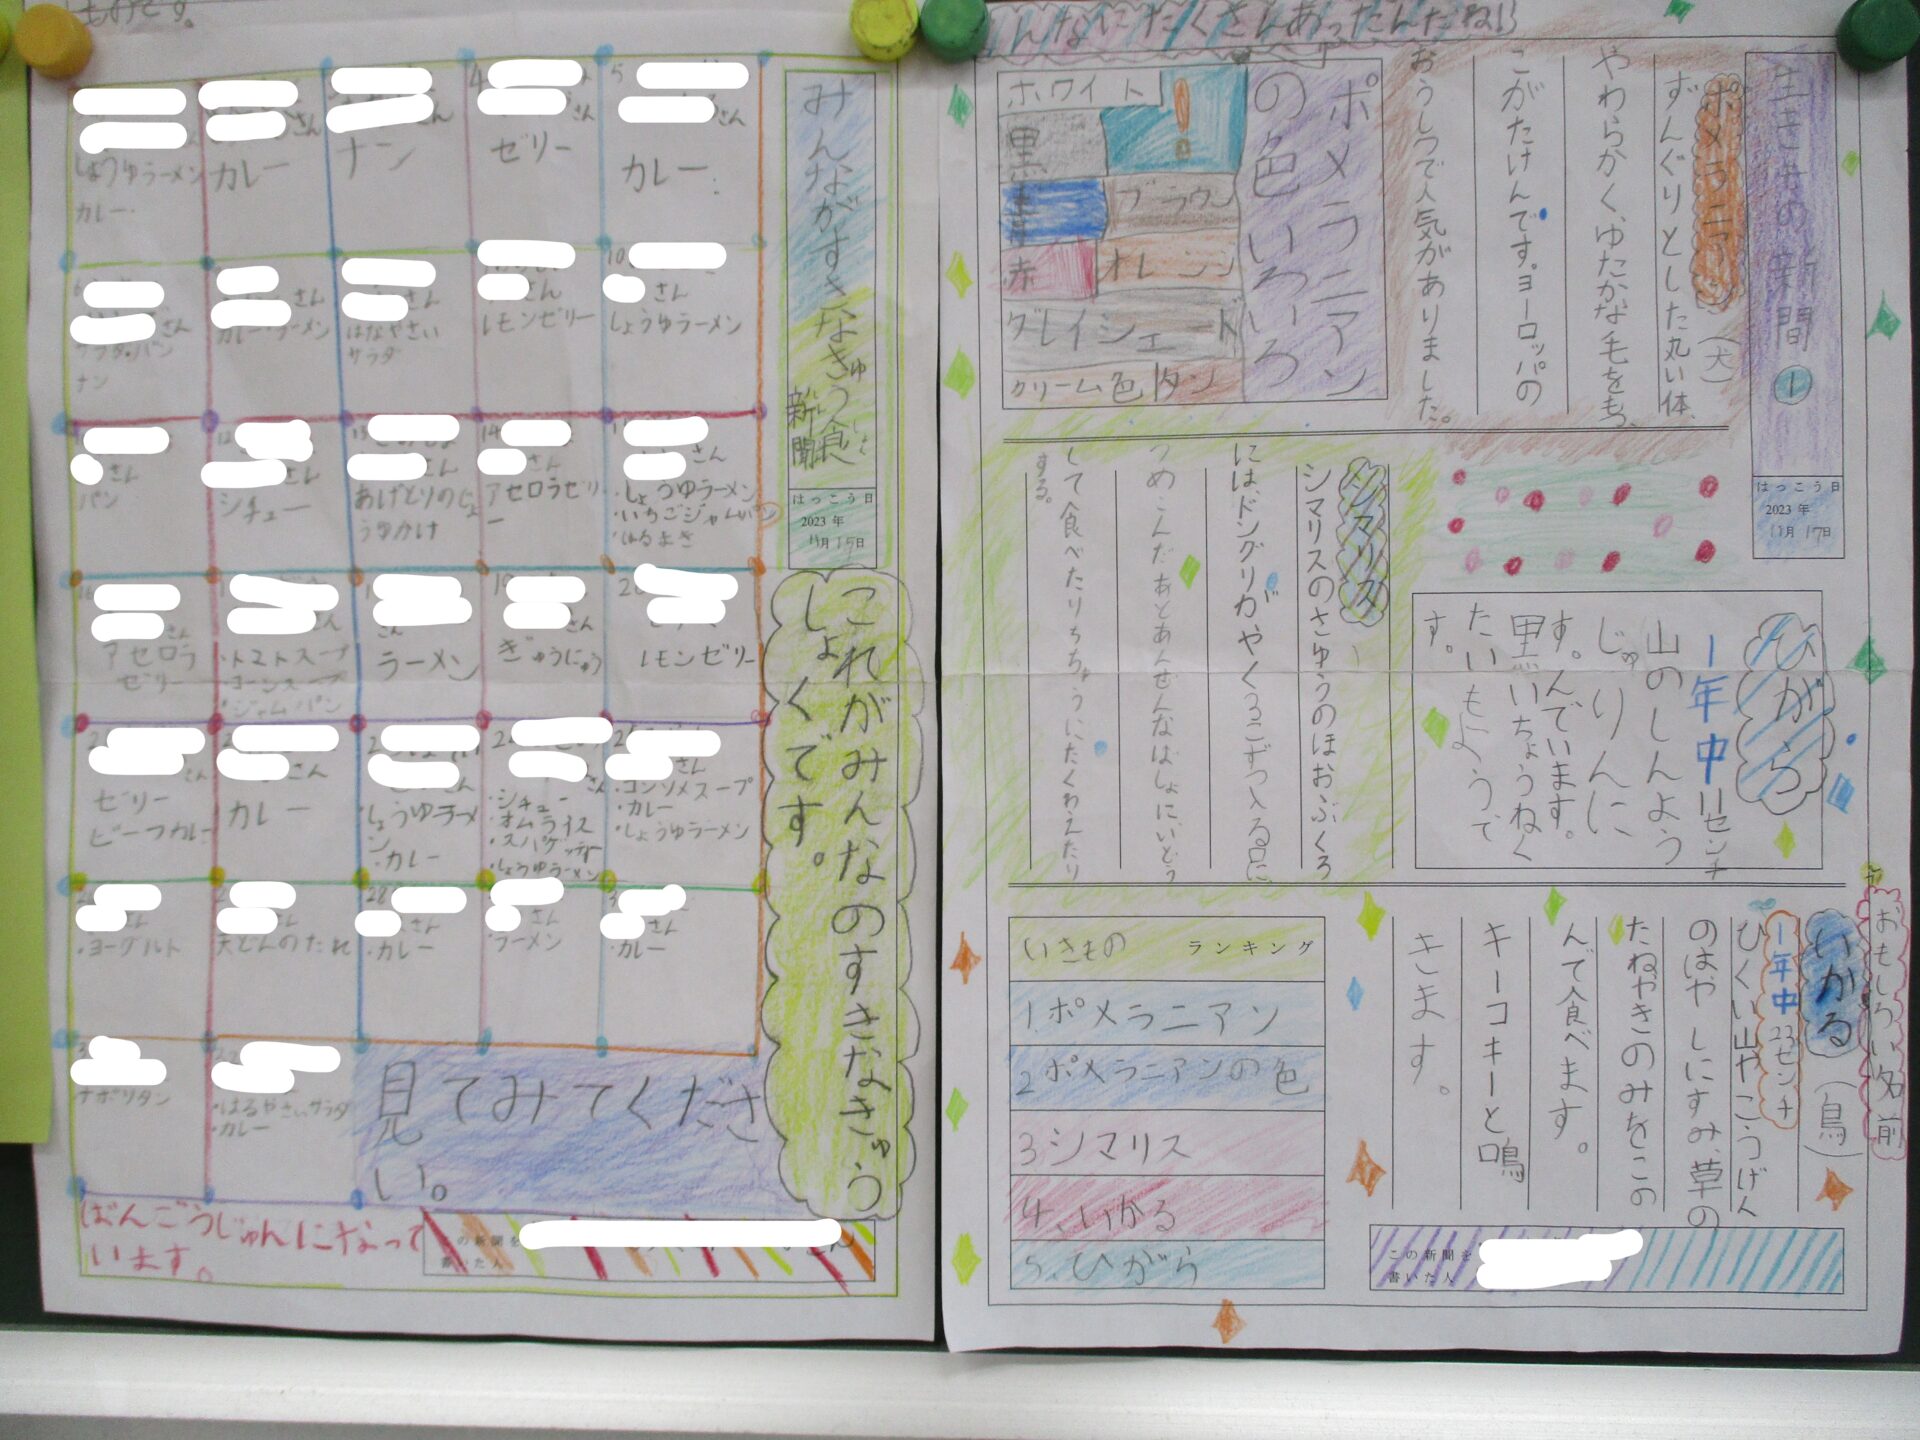 みんながすきなきゅう食
新聞
はっこう日
2023年
11月15日
これがみんなのすきなきゅう
しょくです。
しょうゆラーメン
カレー
カレー
ナン
ゼリー
カレー
サラダ・パン
ナン
カレー・ラーメン
はなやさい
サラダ
レモンゼリー
しょうゆラーメン
パン
シチュー
あげどりのしょ
うゆかけ
アセロラゼリ
ー
・しょうゆラーメン
・いちごジャムパン
・はるまき
アセロラ
ゼリー
・トマトスープ
・コーンスープ
・ジャムパン
ラーメン
ぎゅうにゅう
レモンゼリー
ゼリー
ビーフカレー
カレー
・しょうゆラーメ
ン
・カレー
・シチュー
・オムライス
・スパゲッティ
・しょうゆラーメン
・コンソメスープ
・カレー
・しょうゆラーメン
・ヨーグルト
天どんのたれ
・カレー
ラーメン
・カレー
ナポリタン
・はるやさいサラダ
・カレー
見てみてくださ
い。
ばんごうじゅんになって
います。
この新聞を
書いた人
んなにたくさんあったんだね!!
生きもの新聞①
はっこう日
2023年
11月17日
ポメラニアン(犬)
ずんぐりとした丸い体、
やわらかく、ゆたかな毛をもつ、
こがたけんです。ヨーロッパの
おうしつで人気がありました。
ポメラニアン
の色いろいろ
ホワイト
黒
青
ブラウン
赤
オレンジ
グレイシェード
クリーム色
タン
ひがら
1年中11センチ
山のしんよう
じゅりんに
す。んでいます。
黒いちょうねく
たいもようで
す。
シマリス
シマリスのさゆうのほおぶくろ
には、ドングリがやく3こずつ入る。口に
つめこんだあとあんぜんなばしょに、いどう
して食べたりちちゅうにたくわえたり
する。
おもしろい名前
いかる(鳥)
1年中23センチ
ひくい山やこうげん
のはやしにすみ、草の
たねやきのみをこの
んで食べます。
キーコキーと鳴
きます。
いきものランキング
1.ポメラニアン
2ポメラニアンの色
3シマリス
4、いかる
5、ひがら
この新聞を
書いた人